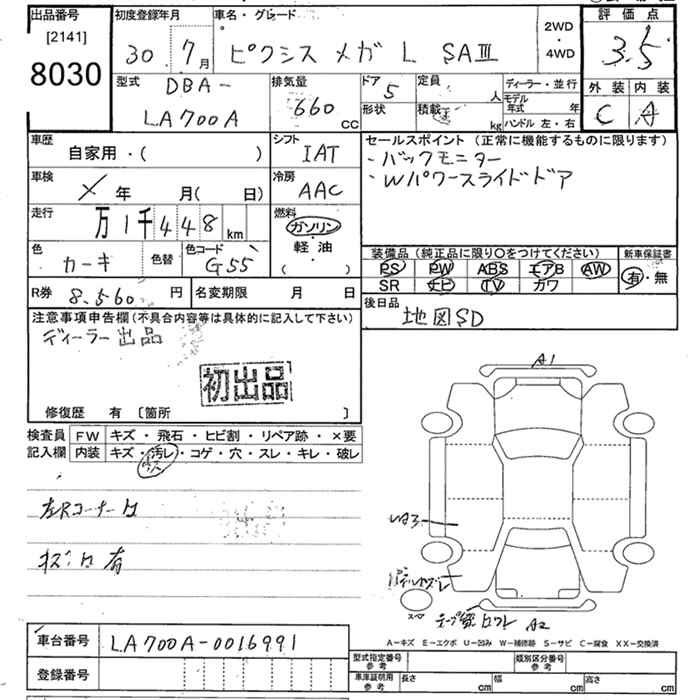 出品番号
[2141]
8030
初度登録年月
30年7月
車名・グレード
ピクシス メガ L SAⅢ
2WD
・
4WD
評価点
3.5
外装 内装
C A
型式
DBA-
LA700A
排気量
660 cc
ドア
5
形状
定員
人
積載
kg
ディーラー・並行
モデル年式 年
ハンドル 左・右
車歴
自家用・( )
シフト
IAT
車検
年 月( 日)
冷房
AAC
走行
万1千448km
燃料
ガソリン
・
軽油
・
( )
色
カーキ
色替
色コード
G55
R券
8.560 円
名変期限 月 日
セールスポイント(正常に機能するものに限ります)
・バックモニター
・Wパワースライドドア
装備品(純正品に限り〇をつけてください)
PS PW ABS エアB AW
SR ナビ TV カワ
新車保証書
有・無
後日品
地図SD
注意事項申告欄(不具合内容等は具体的に記入して下さい)
ディーラー出品
初出品
修復歴 有 [箇所 ]
検査員記入欄
FW キズ・飛石・ヒビ割・リペア跡・×要
内装 キズ・汚レ・コゲ・穴・スレ・キレ・破レ
左Rコーナー凹
キズ凹有
A1
A2
A−キズ E−エクボ U−凹み W−補修跡 S−サビ C−腐食 XX−交換済
車台番号
LA700A-0016991
登録番号
型式指定番号
参考
類別区分番号
参考
車庫証明用
参考
長さ cm
幅 cm
高さ cm